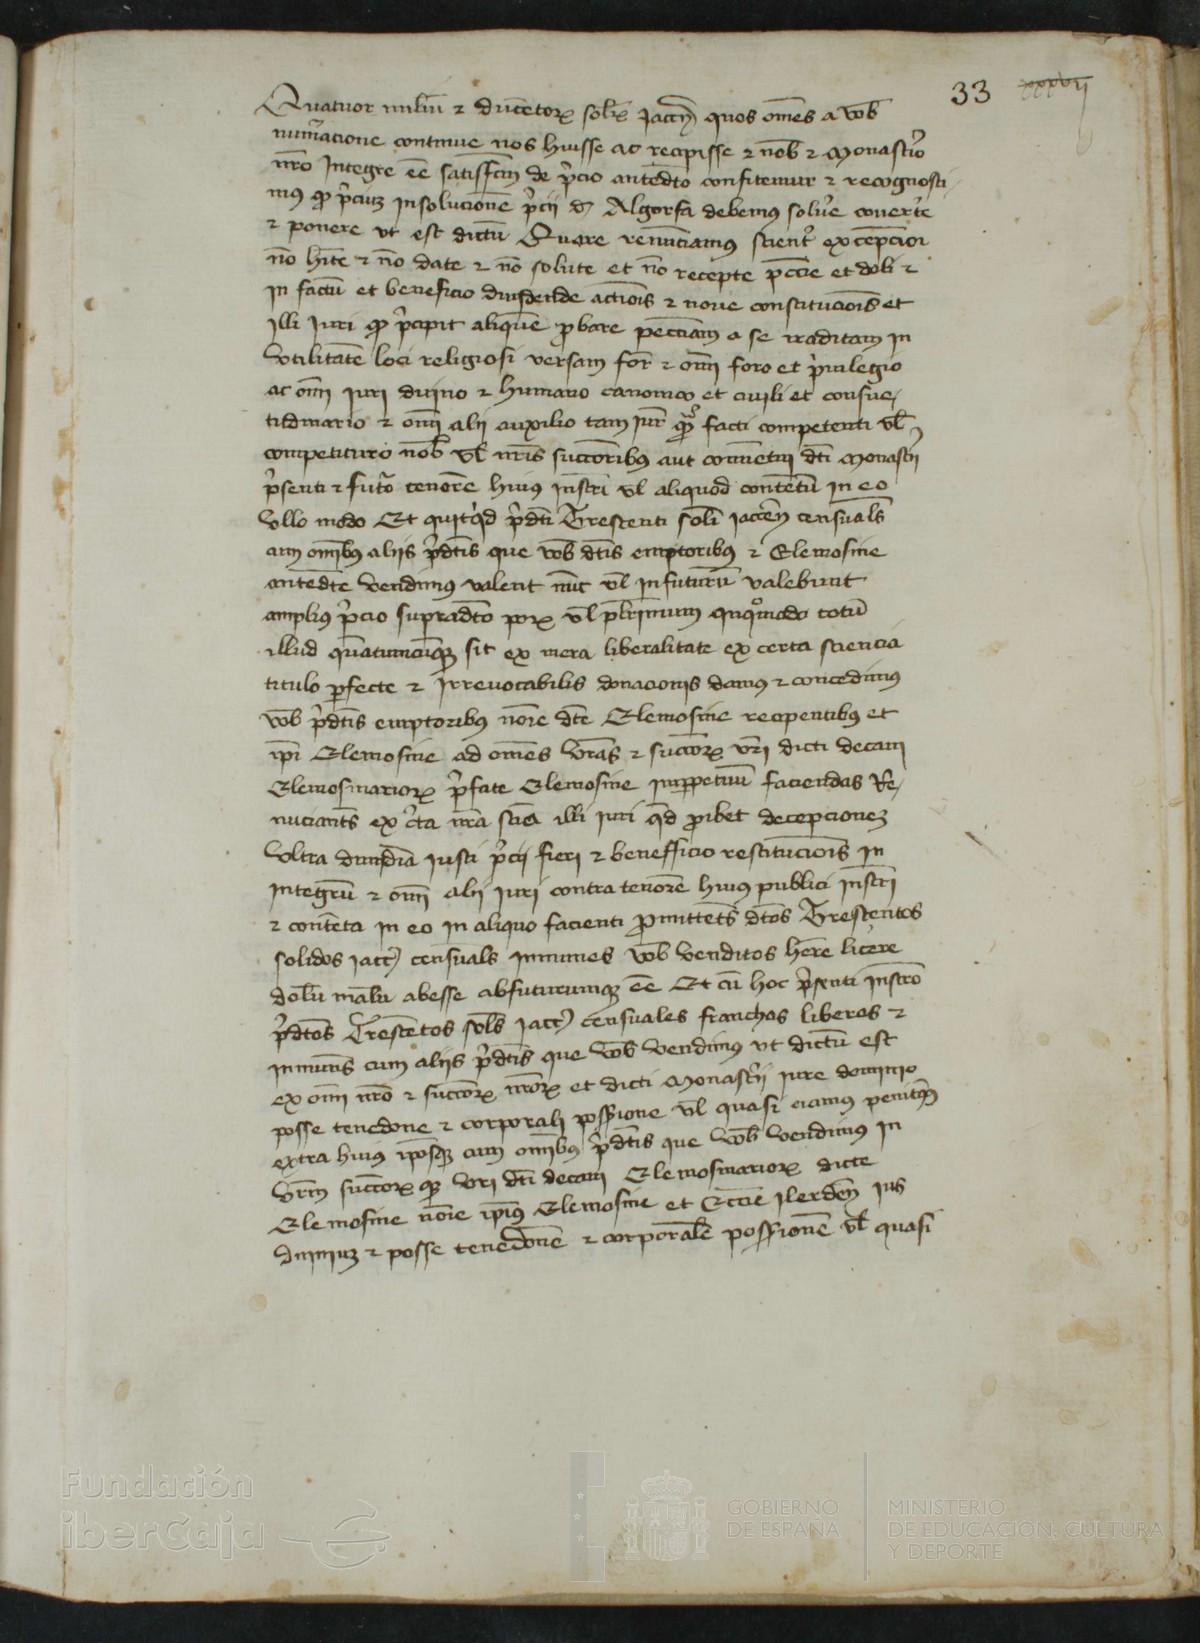 33 xxxvij
Quatuor miliū ⁊ ducētoꝝ solꝝ Jaccȝ quos om̄es a vob̄
num̄acione continue nos huisse ac recepisse ⁊ nob̄ ⁊ Monast̄io
nr̄o Integre ēe satisfc̄m de p̄cio anted̄to confitemur ⁊ recognosci
mus ꝙ p̄cium in solucionē p̄cii d̄ Algorfa debemus solu̅e cōuert̄e
⁊ ponere vt est dictū Quare renūciamus scient̄ excepcioī
nō hīte ⁊ nō date ⁊ nō solute et nō recepte pēc̄ie et doli ⁊
in factū et beneficio diuidende actiōis ⁊ noue constituciōis et
illi Iuri ꝙ p̄cipit aliquē ꝓbare pec̄ciam a se traditam in
vtilitatē loci religiosi versam for̄ ⁊ om̄i foro et p̄uilegio
ac om̄i iuri diuino ⁊ humano canonico et ciuili et consue
tudinario ⁊ om̄i alii auxilio tam iur̄ ꝙ̄ facti competenti vl̄
competituro nob̄ vl̄ nr̄is succoribus aut conuentui dc̄i Monastii
p̄senti ⁊ futur̄o tenorē huius Instr̄i vl̄ aliquod contentū in eo
vllo modo Et quitq̄d p̄dc̄i Trescenti solī iaccen̄ censuals̄
cum om̄ibus aliis p̄dc̄is que vob̄ dc̄is emptoribus ⁊ Elemosine
anted̄te vendimus valent nūc vl̄ in futurū valebunt
amplius p̄cio supradc̄o poꝝ vl̄ pl̄rimum quoq̄modo totū
illud quātumcūqȝ sit ex mera liberalitate ex certa sciencia
titulo ꝑfecte ⁊ Irreuocabilis donacionis damus ⁊ concedimus
vob̄ p̄dc̄is emptoribus noīe dc̄e Elemosine recipientibus et
ip̄i Elemosine ad om̄es vr̄as ⁊ succoꝝ vr̄i dicti decani
Elemosinarioꝝ p̄fate Elemosine imꝑpetuū faciendas Re
nuciantes ex c̄ta nr̄a scīa illi iuri qd̄ ꝓibet decepcionem
vltra dimidīa iusti p̄cii fieri ⁊ benefficio restituciōis in
integrū ⁊ om̄i alii iuri contra tenorē huius publici Instr̄i
⁊ contēta in eo in aliquo facienti ꝓmittent̄s dc̄os Trescentos
solidos Iacc̄ censuals̄ inmunes vob̄ venditos hēre licēre
dolū malū abesse abfuturumqȝ ēe Et cū hoc p̄senti Instr̄o
p̄dc̄os Trescētos sols̄ Iacc̄ censuales franchos liberos ⁊
inmunes cum aliis p̄dc̄is que vob̄ vendimus vt dictū est
ex om̄i nr̄o ⁊ succoꝝ nr̄oꝝ et dicti Monast̄ii iure dominio
posse tenedone ⁊ corporali possione vl̄ quasi
extra huius ip̄osqȝ cum om̄ibus p̄dc̄is que vob̄ vendimus in
vr̄m succoꝝ qȝ vr̄i dc̄i decani Elemosinarioꝝ dicte
Elemosine noīe ip̄ius Elemosine et Ecc̄ie Ilerdeñ ius
dn̄iuȝ ⁊ posse tenedonē ⁊ corporalē possionē vl̄ quasi
Fundación
iberCaja
GOBIERNO
DE ESPAÑA
MINISTERIO
DE EDUCACIÓN, CULTURA
Y DEPORTE